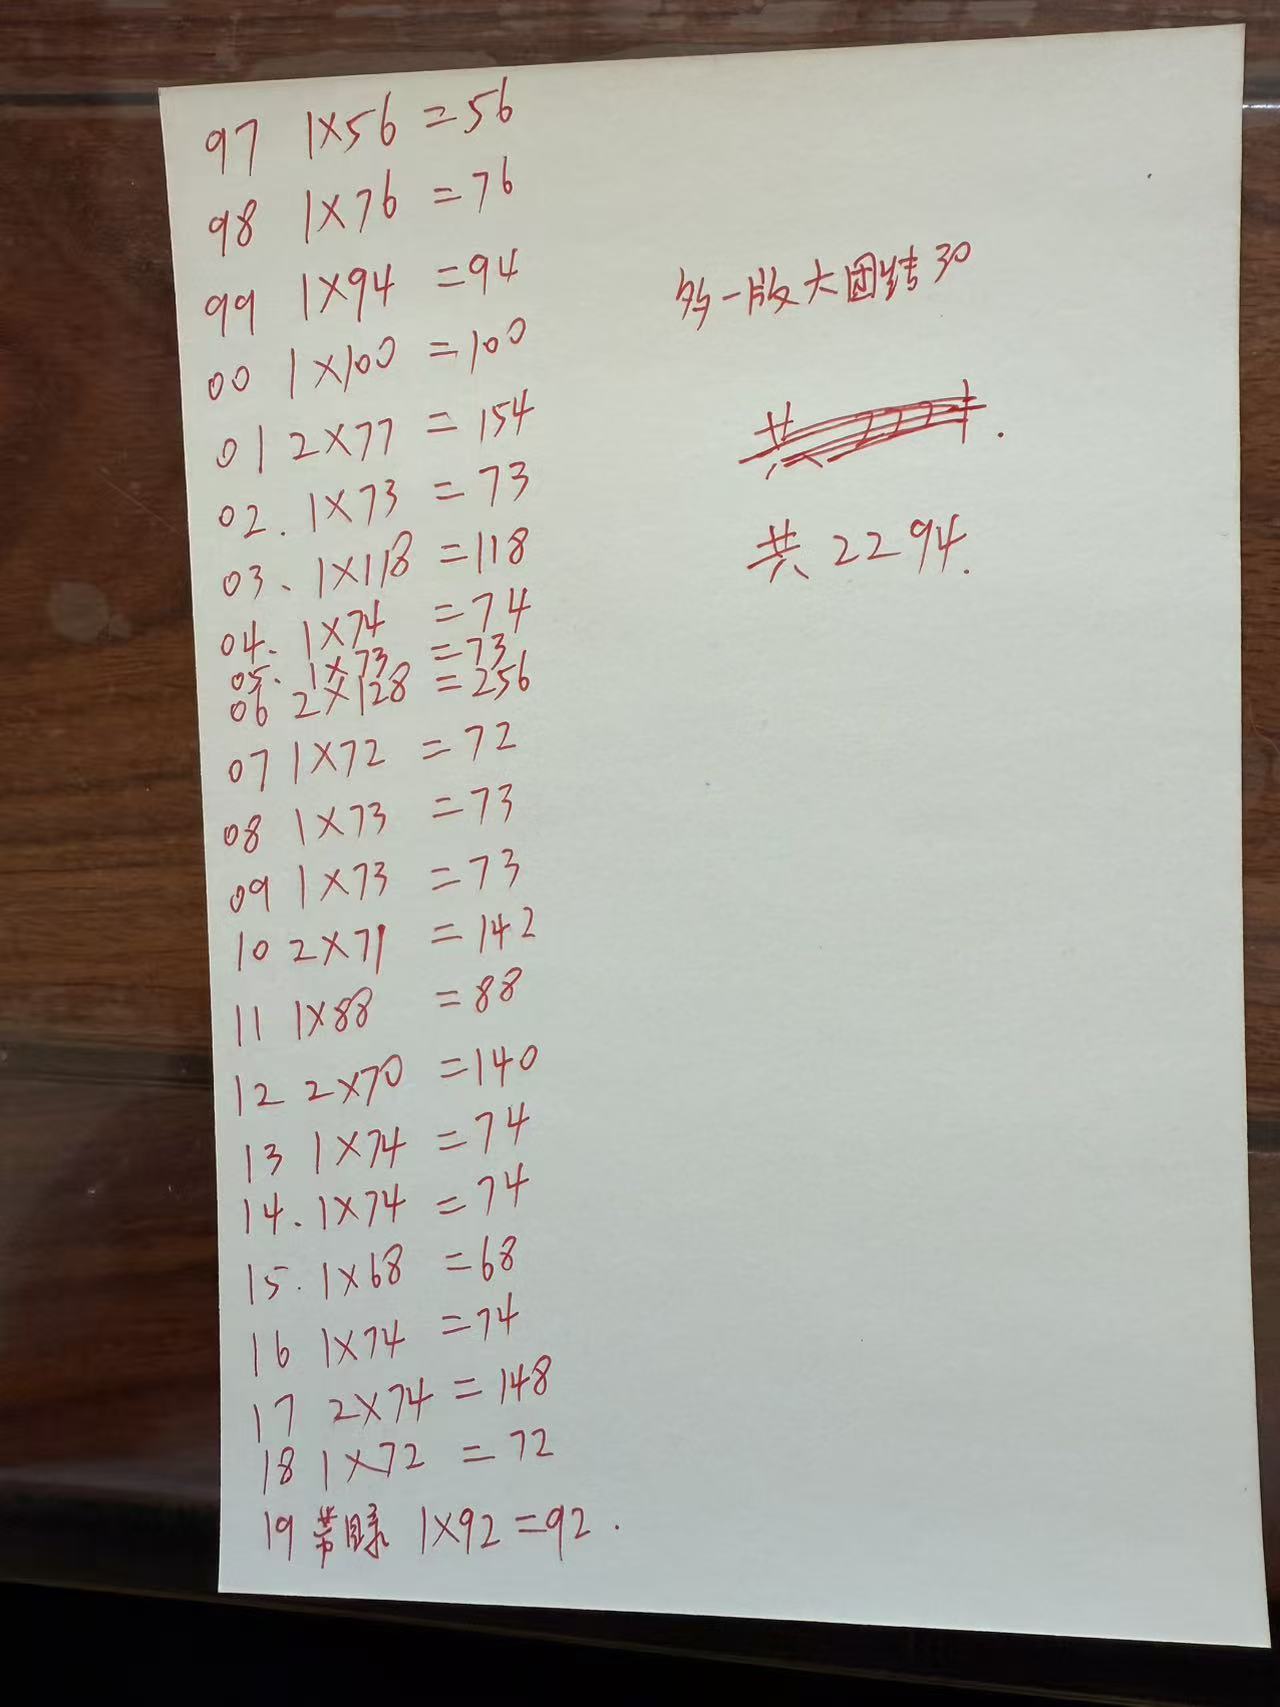 97 1×56=56
98 1×76=76
99 1×94=94
00 1×100=100
01 2×77=154
02. 1×73=73
03、1×118=118
04. 1×74=74
05. 1×73=73
06 2×128=256
07 1×72=72
08 1×73=73
09 1×73=73
10 2×71=142
11 1×88=88
12 2×70=140
13 1×74=74
14. 1×74=74
15. 1×68=68
16 1×74=74
17 2×74=148
18 1×72=72
19 带赎 1×92=92.
多一版大团结30
共2294.